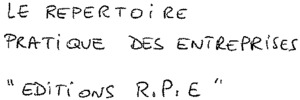 LE REPERTOIRE
PRATIQUE DES ENTREPRISES
"EDITIONS R.P.E"